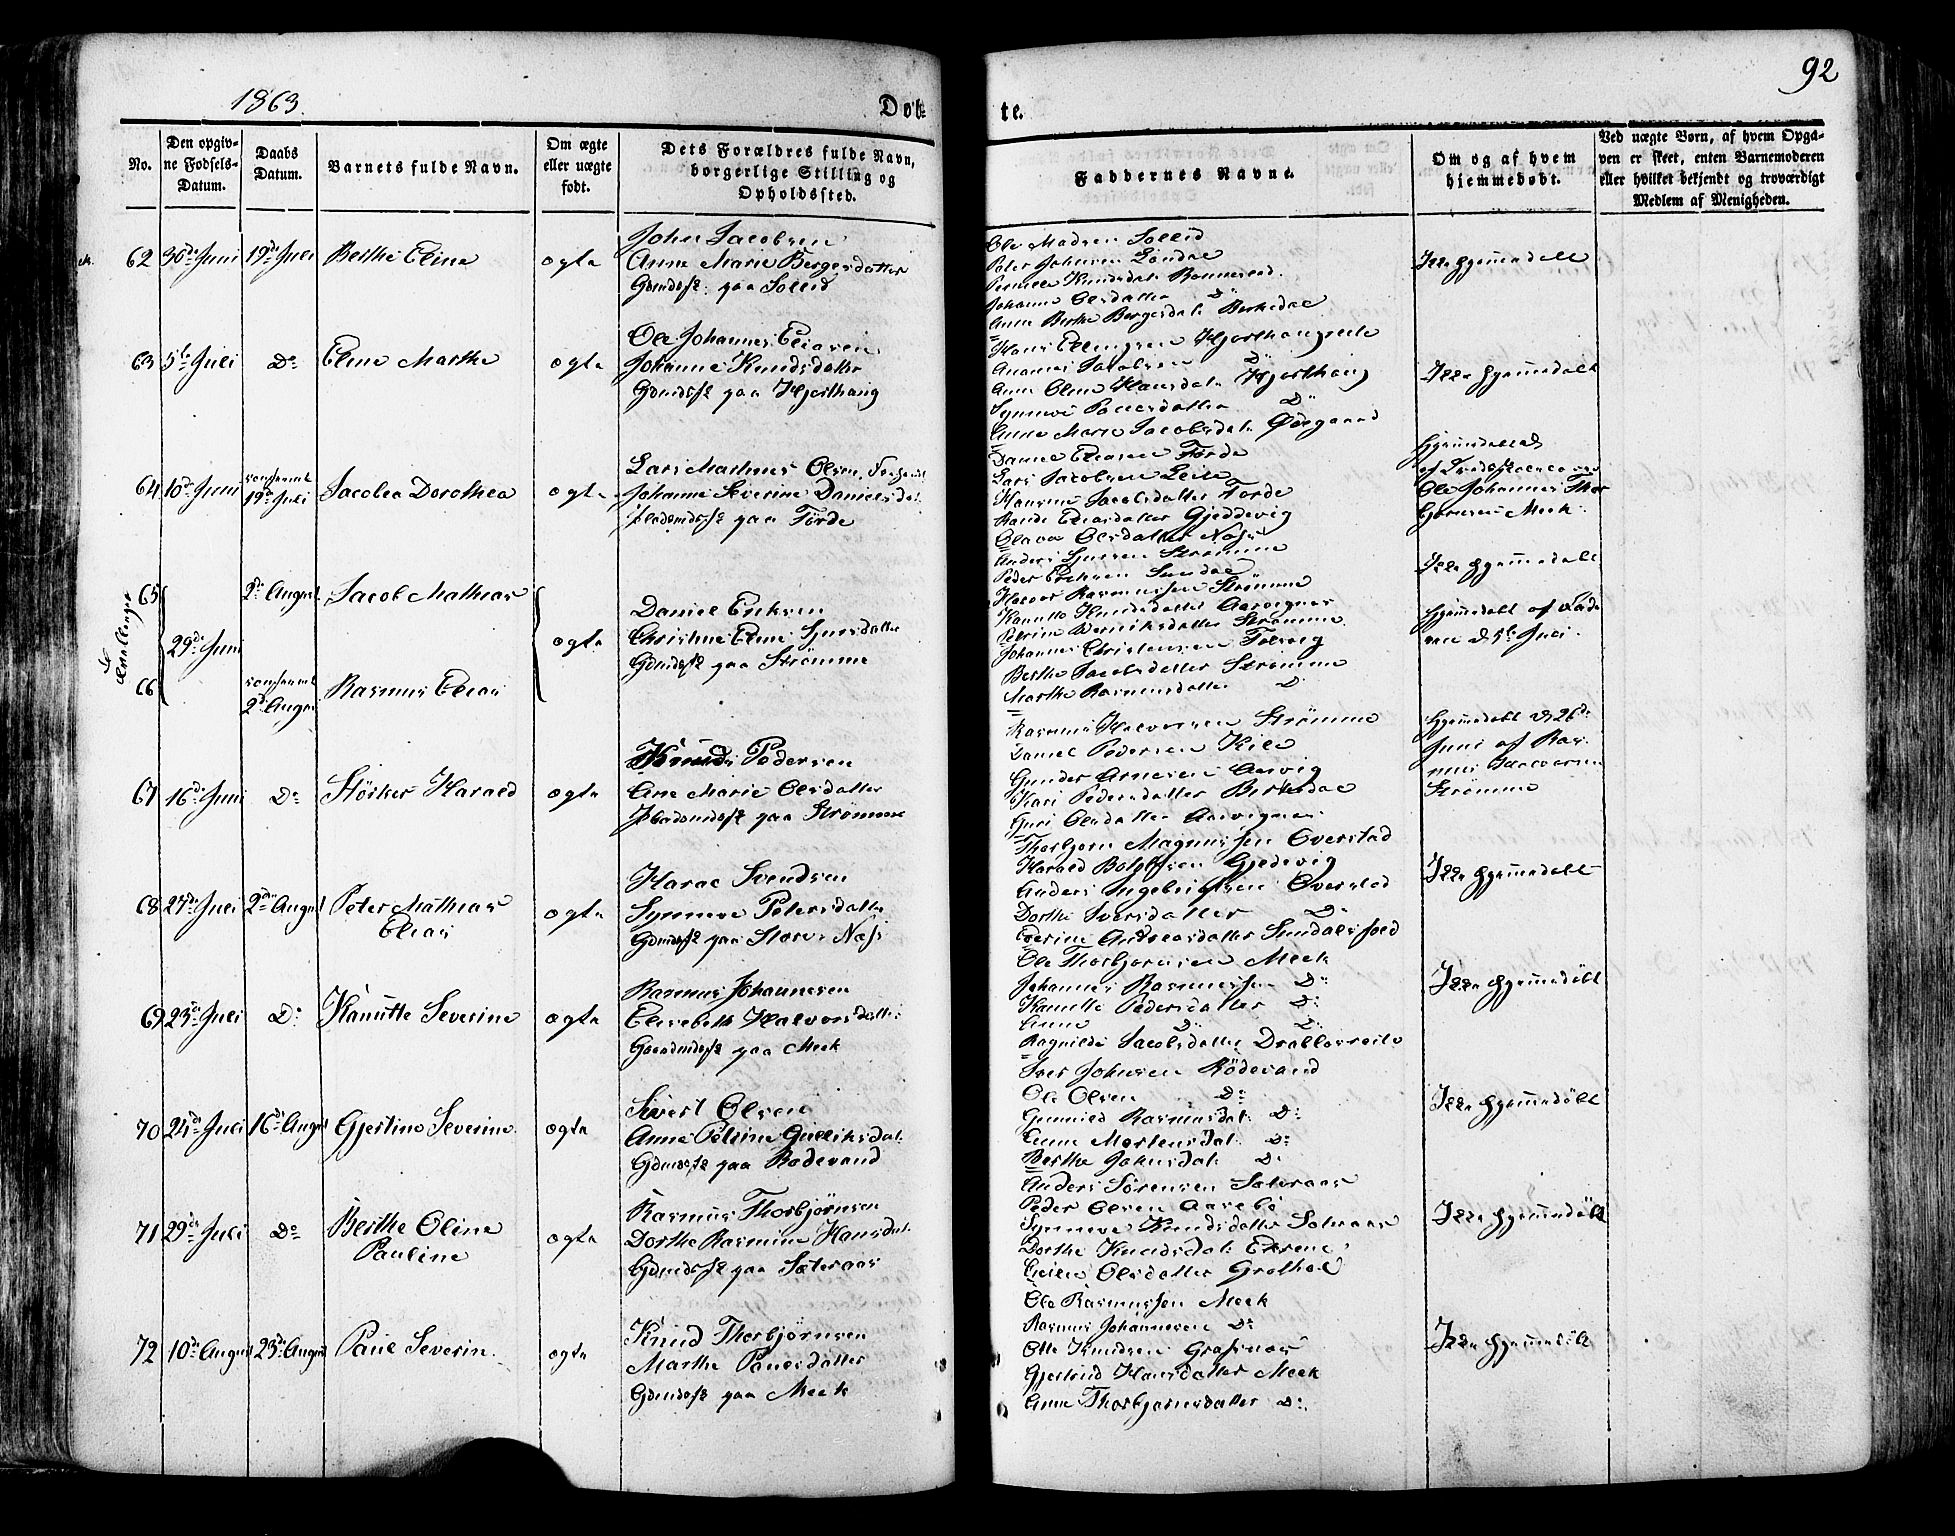 1863.
Døb-
te.
92
No.
Den opgiv-
ne Fødsels-
Datum.
Daabs
Datum.
Barnets fulde Navn.
Om ægte
eller uægte
født.
Dets Forældres fulde Navn,
borgerlige Stilling og
Opholdssted.
Faddernes Navne.
Om og af hvem
hjemmedøbt.
Ved uægte Børn, af hvem Opga-
ven er skeet, enten Barnemoderen
eller hvilket bekjendt og troværdigt
Medlem af Menigheden.
62 30de Juni 19de Juli Berthe Eline ægte
John Jacobsen
Anne Marie Bergesdatter
Gbmdsfk: paa Sollid
Ole Madsen Sollid
Peter Johnsen Lindae
Pernille Knudsdat:
Johanne Olsdatter Do
Anne Berthe Bergesdat: Birkedal
Ikke hjemmedøbt
63 5te Juli Do Eline Marthe ægte
Ole Johannes Eliasen
Johanne Knudsdatter
Gbmdsfk paa Hjorthaug
Hans Ellingsen Hjorthaugeile
Jacobsen Do
Anne Oline Hansdat: Hjorthaug
Synneve Pouelsdatter Do
Anne Marie Jacobsdat: Ødegaard
Ikke hjemmedøbt
64 10de Juni confirmt 19de Juli Jacobea Dorothea ægte
Lars Mathias Olsen
Johanne Severine Danielsdat.
paa Førde
Daniel Eliasen Førde
Lars Jacobsen Leite
Hansine Jacobsdatter Førde
Rande Eliasdatter Gjeddevig
Olava Olsdatter Næss
Hjemmedøbt
af
Ole Johannes Thor
bjørnsen Meek.
Tvillinger
65 2de August Jacob Mathias
29de Juni
66 confirmt 2de August Rasmus Elias
ægte
Daniel Eriksen
Christine Eline Sjursdatter
Gbmdsfk paa Strømme
Anders Sjursen Strømme
Peder Eriksen Sundal
Halvor Rasmussen Strømme
Kanutte Knudsdatter Aarvignes
Petrine Henriksdatter Strømme.
Johannes Christensen Tolvig
Berthe Jacobsdatter Strømme
Marthe Rasmusdatter Do
Ikke hjemmedøbt
Hjemmedøbt af Fade
ren d. 5te Juli.
67 16de Juni Do Størker Harald ægte
Knud Pedersen
Ane Marie Olsdatter
paa Strømme
Rasmus Halvorsen Strømme
Daniel Pedersen Kile
Gunder Arnesen Aarvig
Kari Pedersdatter Birkedal
Guri Olsdatter Aarvignes
Hjemmedøbt d. 26de
Juni af Ras-
mus Halvorsen
Strømme
68 27de Juli 2de August Peter Mathias
Elias
ægte
Harald Svendsen
Synneve Petersdatter
Gbmdsfk paa Store Næss
Thorbjørn Magnussen Overstad
Harald Gjedevig
Anders Ingebrigtsen Overstad
Dorthe Iversdatter Do
Andreasdatter
Ikke hjemmedøbt
69 23de Juli Do Kanutte Severine ægte
Rasmus Johannesen
Elisabeth Halvorsdatter
paa Meek
Ole Thorbjørnsen Meek
Johannes Rasmussen Do
Kanutte Pedersdatter Do
Anne Do Do
Ragnilde Jacobsdatter
Ikke hjemmedøbt
70 24de Juli 16de August Gjertine Severine. ægte
Sivert Olsen
Anne Petrine Gulliksdat.
Gbmdsfk paa Rødevand
Iver Johnsen Rødevand
Ole Olsen Do
Gunnild Rasmusdat. Do
Anne Mortensdat. Do
Berthe Johnsdat. Do
Ikke hjemmedøbt
71 29de Juli Do Berthe Oline
Pauline
ægte
Rasmus Thorbjørnsen
Dorthe Rasmine Hansdat.
Gbmdsfk paa Sæteraas
Anders Sørensen Sæteraas
Peder Olsen Aarebø
Synneve Knudsdatter Sæteraas
Dorthe Knudsdat:
Olsdatter
Ikke hjemmedøbt
72 10de August 23de August Paul Severin. ægte
Knud Thorbjørnsen
Marthe Paulsdatter
Gbmdsfk paa Meek
Ole Rasmussen Meek
Rasmus Johannesen Do
Otte Knudsen
Gjertrud Hansdatter Meek
Anne Thorbjørnsdatter Do
Ikke hjemmedøbt